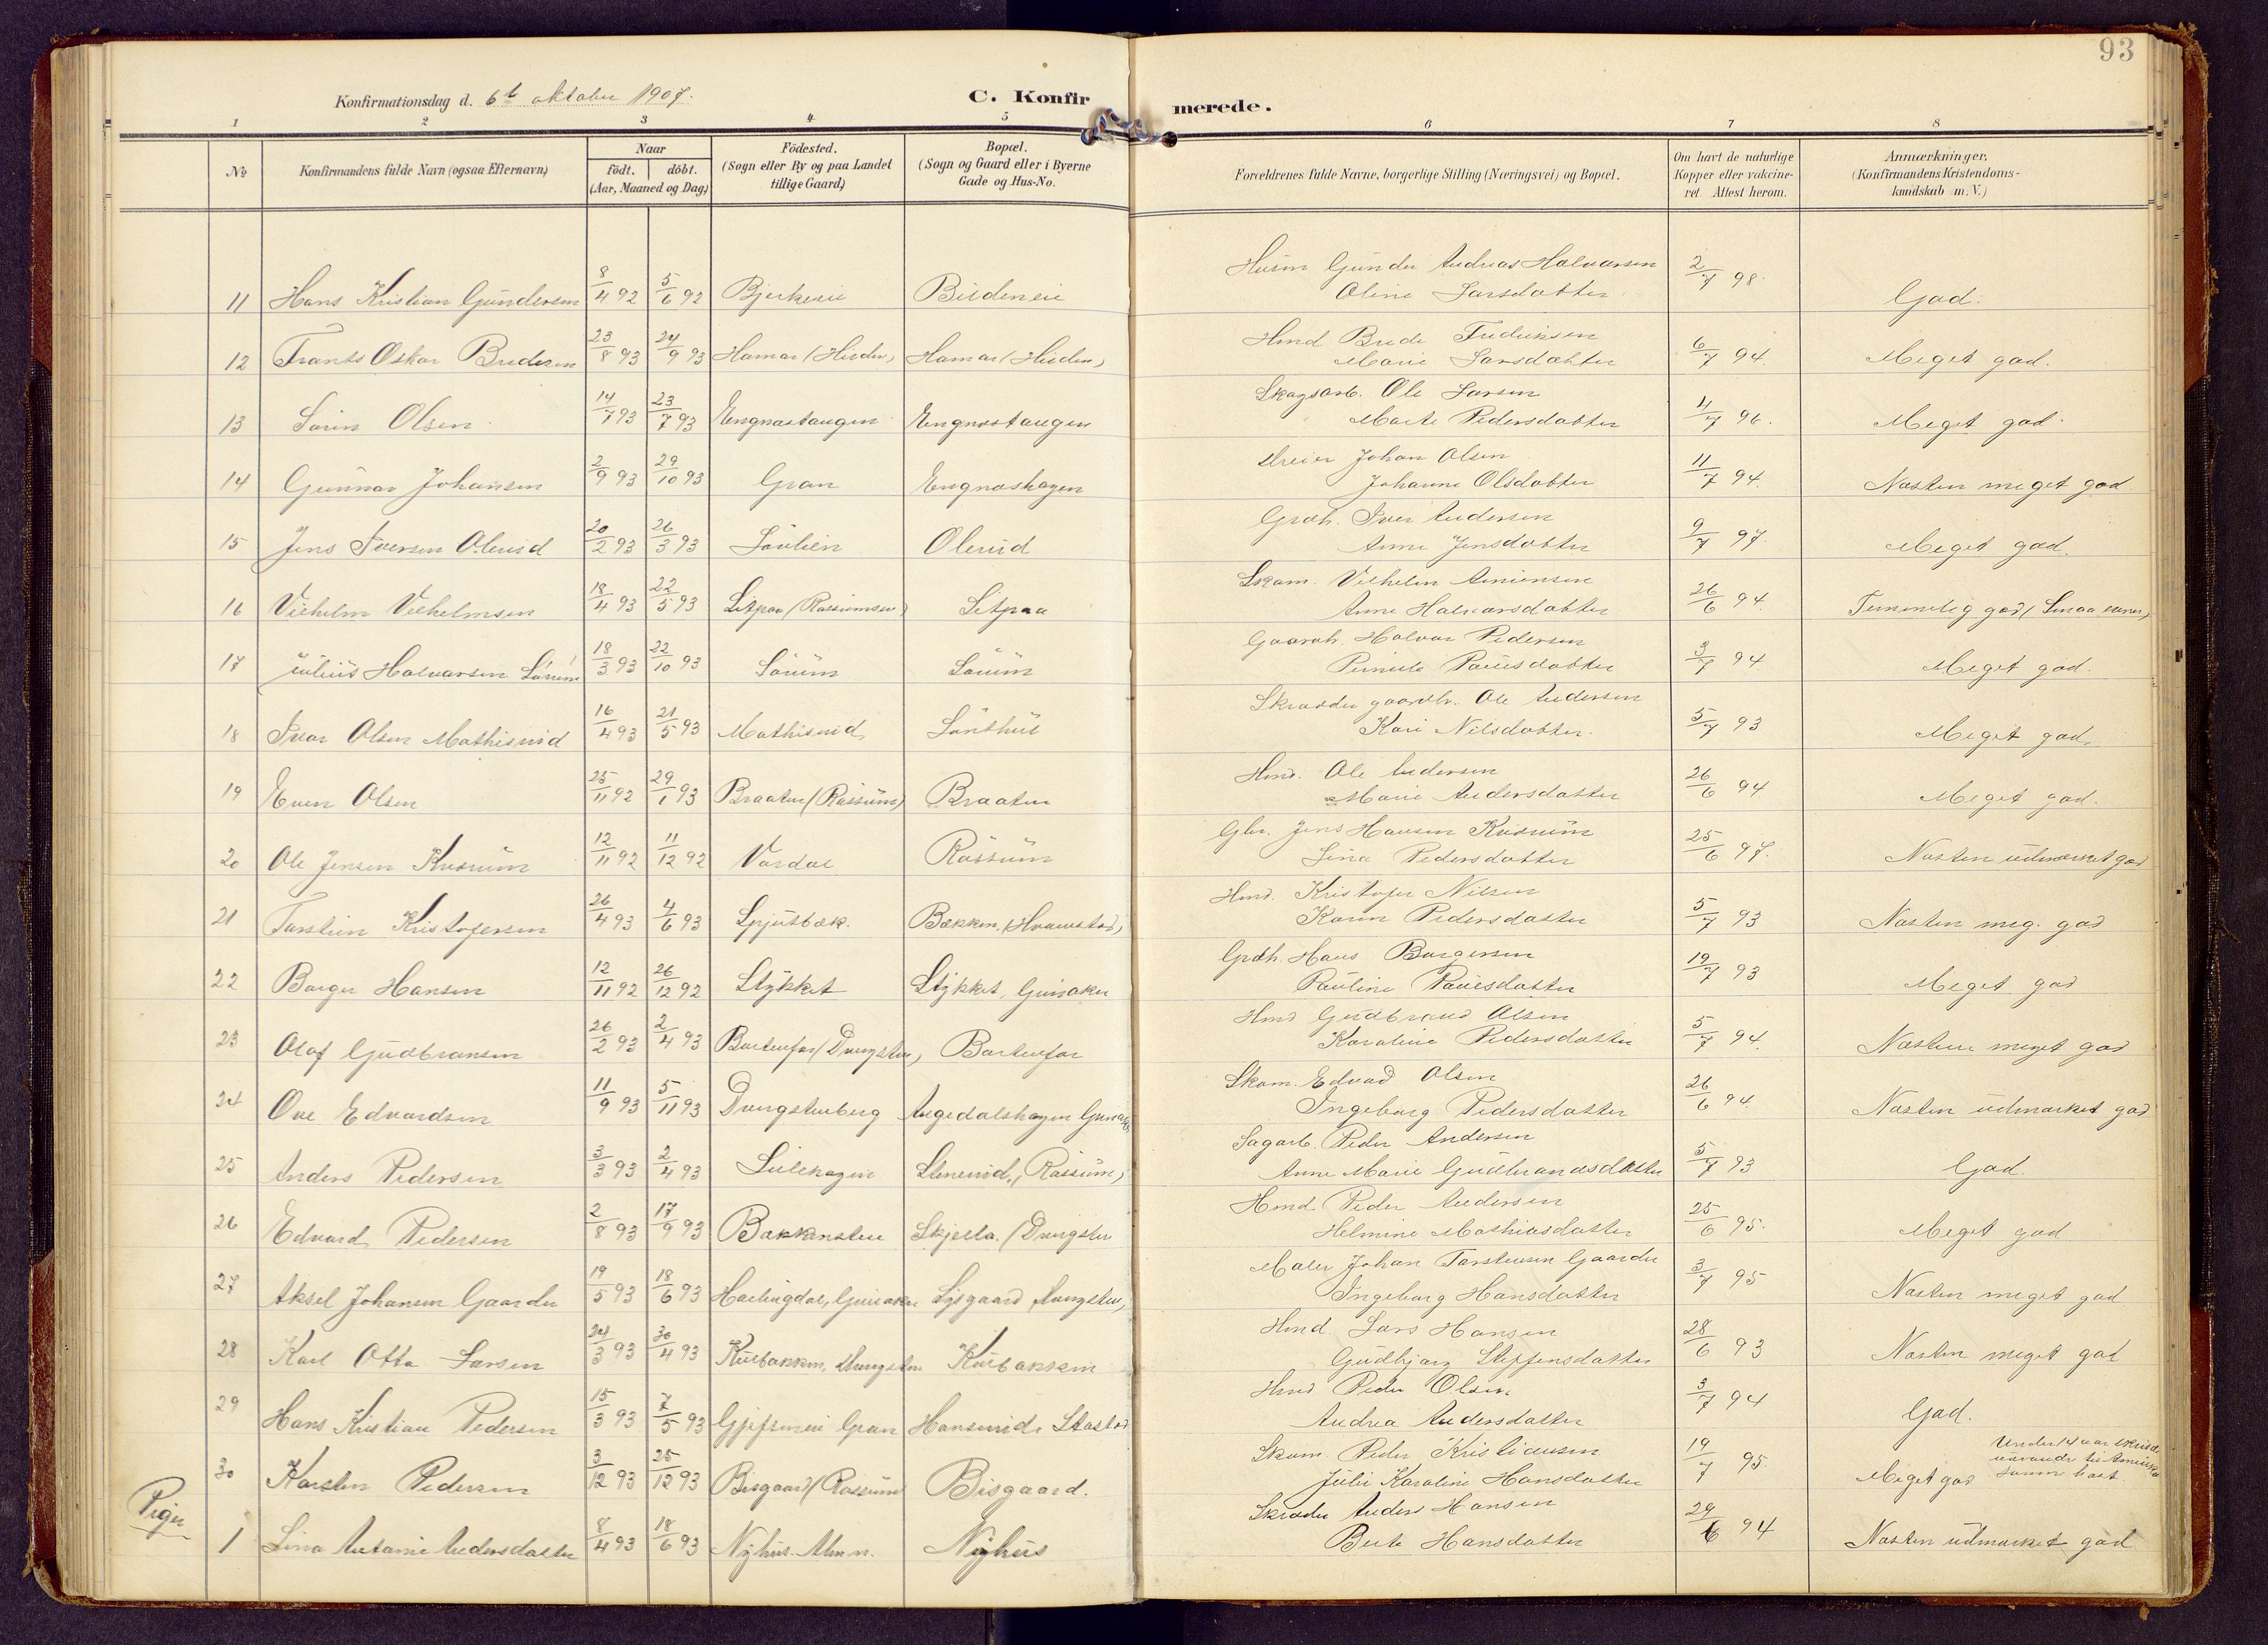 93
Konfirmationsdag d. 6t oktober 1907.
C. Konfirmerede.
1 2 3 4 5 6 7 8
No
Konfirmandens fulde Navn (ogsaa Efternavn)
Naar
födt. döbt.
(Aar, Maaned og Dag)
Födested.
(Sogn eller By og paa Landet
tillige Gaard)
Bopæl.
(Sogn og Gaard eller i Byerne
Gade og Hus-No.
Forældrenes fulde Navne, borgerlige Stilling (Næringsvei) og Bopæl.
Om havt de naturlige
Kopper eller vakcine-
ret. Attest herom.
Anmærkninger.
(Konfirmandens Kristendoms-
kundskab m. V.)
11 Hans Kristian Gundersen 8/4 92 5/6 92 Bjerkeeie Bildeneie
Husm Gunder Andreas Halvorsen
Oline Larsdatter 2/7 98. God.
12 Frants Oskar Bredesen 23/8 93 24/9 93 Hamar Hamar
Hmd Brede Fredriksen
Marie Larsdatter 6/7 94. Meget god.
13 Sörin Olsen 14/7 93 23/7 93 Engnæstangen Engnæstangen
Skogsarb. Ole Larsen
Marte Pedersdatter 4/7 96. Meget god.
14 Gunnar Johansen 2/9 93 29/10 93 Gran Engnæshagen
Dreier Johan Olsen
Johanne Olsdatter 11/7 94. Næsten meget god
15 Jens Iversen Olerud 20/2 93 26/3 93 Olerud
Grdb. Iver Andersen
Anne Jensdatter 9/7 97. Meget god.
16 Vilhelm Vilhelmsen 18/4 93 22/5 93
Skom. Vilhelm
Anne Halvorsdatter 26/6 94. Temmelig god
17 Julius Halvorsen Sörum 18/3 93 22/10 93 Sörum Sörum
Gaardb. Halvor Pedersen
Pernille Paulsdatter 3/7 94. Meget god.
18 Ivar Olsen Mathisrud 16/4 93 21/5 93 Mathisrud
Skrædder gaardbr. Ole Andersen
Kari Nilsdatter. 5/7 93 Meget god.
19 Even Olsen 25/11 92 29/1 93 Braaten (Røssum) Braaten
Hmd. Ole Andersen
Marie Andersdatter 26/6 94 Meget god.
20 Ole Jensen Kværum 12/11 92 11/12 92 Vardal Røssum
Gbr. Jens Hansen Kværum
Lina Pedersdatter 25/6 97. Næsten udmærket god
21 Torstein Kristofersen 26/4 93 4/6 93 Spjutbæk. Bækken
Hmd. Kristofer Nilsen
Karen Pedersdatter 5/7 93 Næsten meg. god
22 Borger Hansen 12/11 92 26/12 92 Stykket Stykket, Grinaker
Grdb. Hans Borgersen
Pauline Paulsdatter 19/7 93 Meget god
23 Olaf Gudbransen 26/2 93 2/4 93
Hmd Gudbrand Olsen
Karoline Pedersdatter 5/7 94. Næsten meget god
24 Ove Edvardsen 11/9 93 5/11 93 Dvergstenberg
Skom. Edvard Olsen
Ingeborg Pedersdatter 26/6 94. Næsten udmærket god
25 Anders Pedersen 3/3 93 2/4 93 Lillehagen Stenerud, (Røssum)
Sagarb. Peder Andersen
Anne Marie Gudbrandsdatter 5/7 93 God.
26 Edvard Pedersen 2/8 93 17/9 93 Skjella. (Dvergsten
Hmd. Peder Andersen
Helmine Mathiasdatter 25/6 95. Meget god
27 Aksel Johansen Gaarder 19/5 93 18/6 93 Grinaker Lysgaard
Maler Johan Torstensen Gaarder
Ingeborg Hansdatter 3/7 95 Næsten meget god
28 Karl Otto Larsen 24/3 93 30/4 93 Kulbakken, Dvergsten Kulbakken
Hmd. Lars Hansen
Gudbjørg Steffensdatter 28/6 93 Næsten meget god
29 Hans Kristian Pedersen 15/3 93 7/5 93 Gran Hanserud
Hmd Peder Olsen
Andrea Andersdatter 3/7 94 God.
30 Karsten Pedersen 3/12 93 25/12 93 Bisgaard (Røssum) Bisgaard.
Skom. Peder Kristiansen
Julie Karoline Hansdatter 19/7 95. Meget god
Under 14 aar
til Amerika
Piger
1 Lina Antonie Andersdatter 8/4 93 18/6 93 Nyhus Nyhus
Skræder Anders Hansen
Berte Hansdatter 29/6 94 Næsten udmærket god